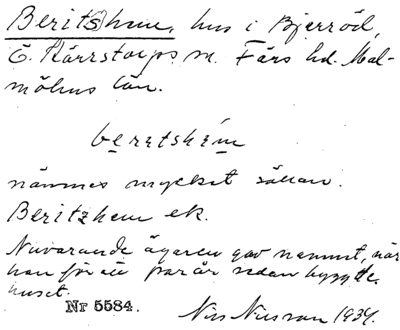 Berit(s)hem, hus i Bjerröd,
Ö. Kärrstorps sn. Färs hd. Mal-
möhus län.
beretshém
nämnes mycket sällan.
Beritzhem ek.
Nuvarande ägaren gav namnet, när
han för ett par år sedan byggde
huset.
Nr 5584.
Nils Nilsson 1934.